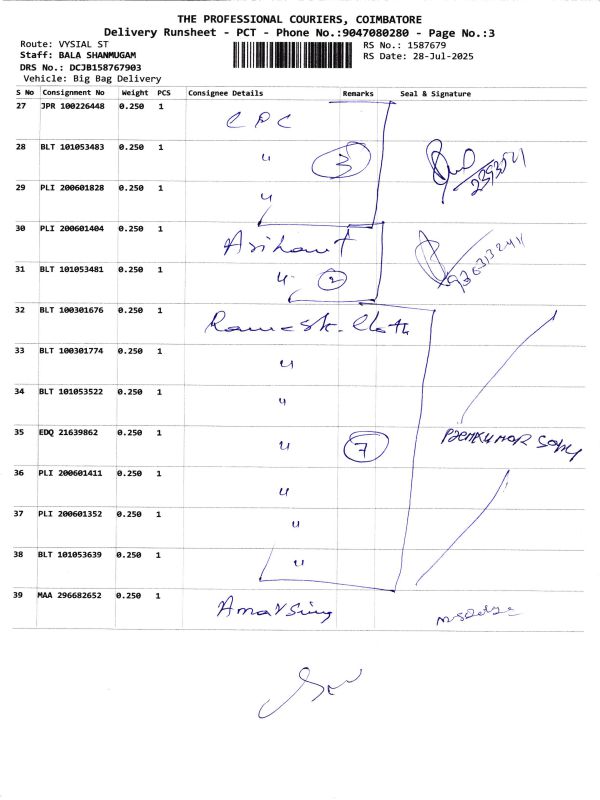 THE PROFESSIONAL COURIERS, COIMBATORE
Delivery Runsheet - PCT - Phone No.:9047080280 - Page No.:3
Route: VYSIAL ST
RS No.: 1587679
Staff: BALA SHANMUGAM
RS Date: 28-Jul-2025
DRS No.: DCJB158767903
Vehicle: Big Bag Delivery
S No Consignment No Weight PCS Consignee Details Remarks Seal & Signature
27 JPR 100226448 0.250 1 CPC
28 BLT 101053483 0.250 1 " 3
29 PLI 200601828 0.250 1 "
30 PLI 200601404 0.250 1 Arihant
31 BLT 101053481 0.250 1 " 2
32 BLT 100301676 0.250 1 Ramesh. Cloth
33 BLT 100301774 0.250 1 "
34 BLT 101053522 0.250 1 "
35 EDQ 21639862 0.250 1 " 7
36 PLI 200601411 0.250 1 "
37 PLI 200601352 0.250 1 "
38 BLT 101053639 0.250 1 "
39 MAA 296682652 0.250 1 Amar Sing